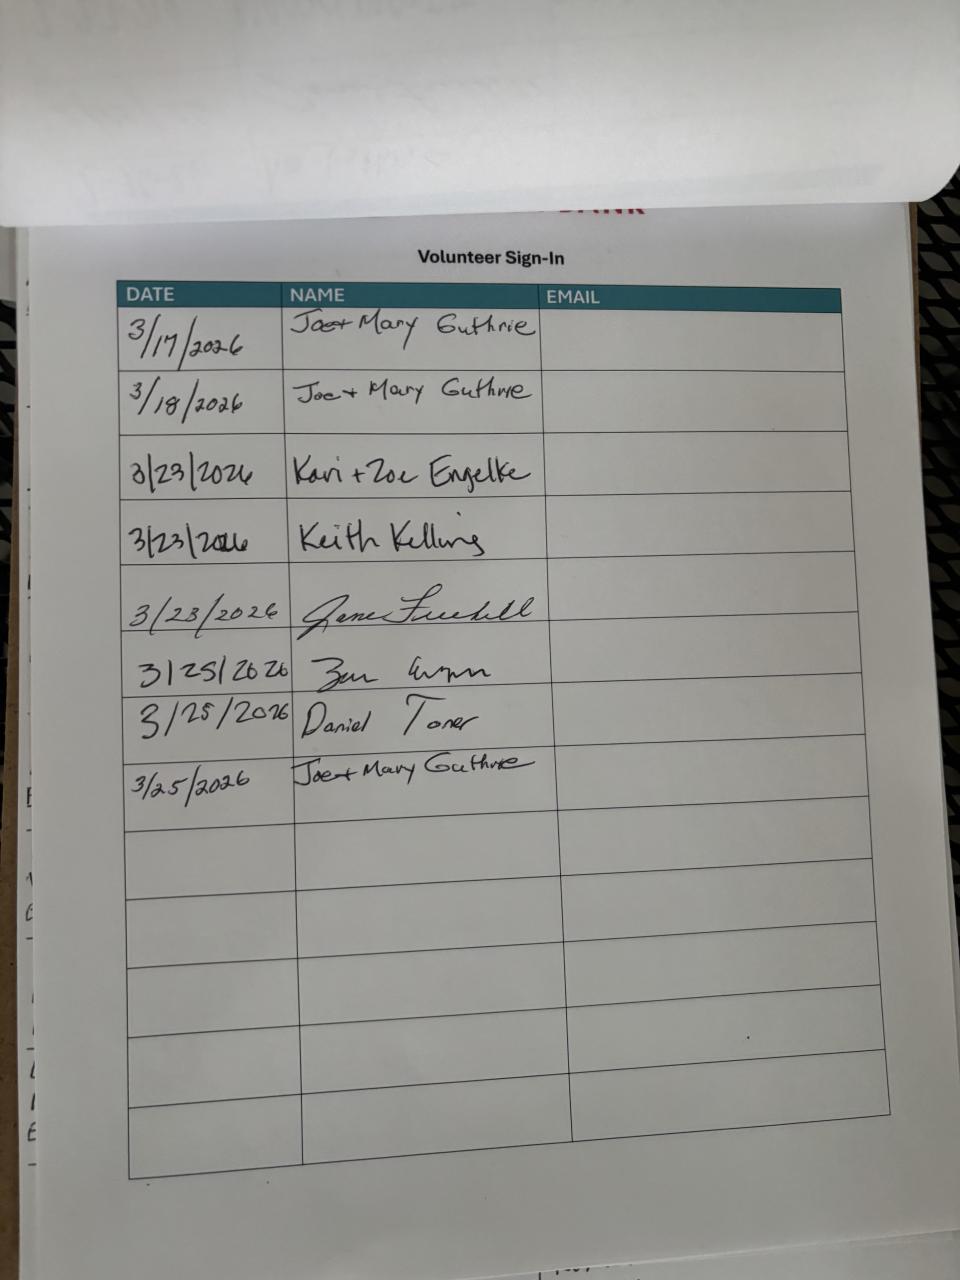 BANK
Volunteer Sign-In
DATE NAME EMAIL
3/17/2026 Joe + Mary Guthrie
3/18/2026 Joe + Mary Guthrie
3/23/2026 Kari + Zoe Engelke
3/23/2026 Keith Kelling
3/23/2026 Jane
3/25/2026
3/25/2026 Daniel Toner
3/25/2026 Joe + Mary Guthrie